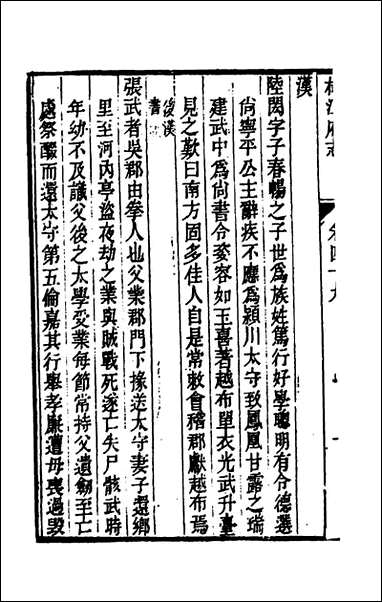 松江府志
卷四十九
漢
陸閎字子春暢之子世爲族姓篤行好學聰明有令德選
尙寧平公主辭疾不應爲潁川太守致鳳凰甘露之瑞
建武中爲尙書令姿容如玉喜著越布單衣光武升臺
見之歎曰南方固多佳人自是常敕會稽郡獻越布焉
後漢
書
張武者吳郡由拳人也父業郡門下掾送太守妻子還鄉
里至河內亭盜夜劫之業與賊戰死遂亡失尸骸武時
年幼不及識父後之太學受業每節常持父遺劒至亡
處祭醊而還太守第五倫嘉其行舉孝廉遭母喪過毀